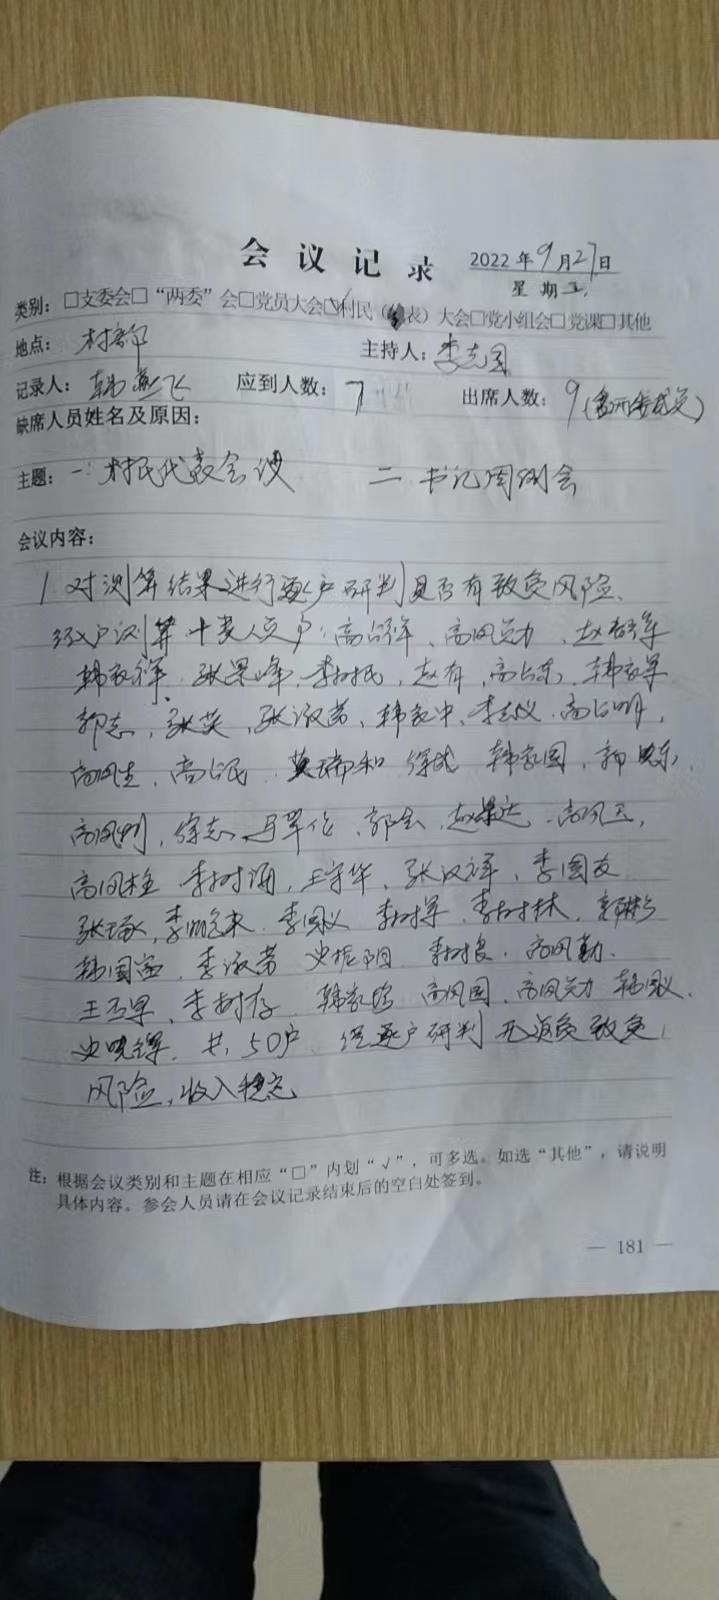 会议记录 2022年9月27日
星期二
类别：□支委会□“两委”会□党员大会☑村民（代表）大会□党小组会□党课□其他
地点：村部 主持人：李志国
记录人：韩燕飞 应到人数：7 出席人数：9
缺席人员姓名及原因：
主题：一：村民代表会议 二 书记周例会
会议内容：
1 对测算结果进行逐户研判是否有致贫风险、
高占祥、高凤、赵
韩家祥、张景峰、李树民、赵有、高占东、韩家军
郭志、张英、张淑芳、韩家中、李志义、高占明，
高凤生、高占民 和 徐 韩家国、郭
高凤刚，徐志、马军、郭、赵、高凤
高凤柱 李树、王守华、张汉祥、李国友
张，李来 李国义 李树军、李树林、郭
韩国富、李淑芳 史振阳 李树良、高凤勤、
王、李树存、韩家 高凤国、高凤 韩国义、
史晓辉、共50户 经逐户研判 无返贫致贫
风险，收入稳定
注：根据会议类别和主题在相应“□”内划“√”，可多选。如选“其他”，请说明
具体内容。参会人员请在会议记录结束后的空白处签到。
— 181 —